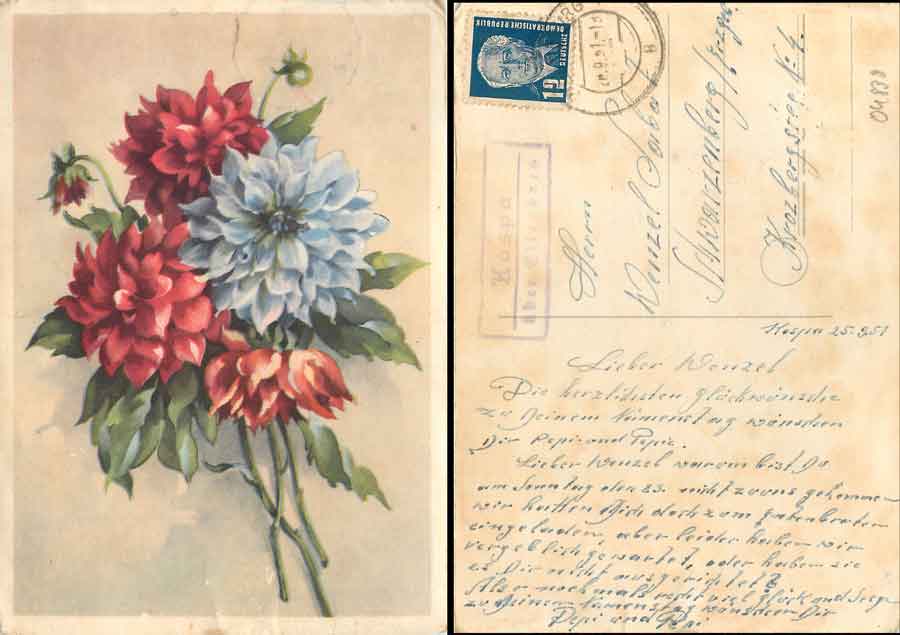 DEUTSCHE
DEMOKRATISCHE REPUBLIK
12
Kospa
über Eilenburg
Herrn
Wenzel
Schwarzenberg/Erzgeb.
04838
Kospa 25.9.51
Lieber Wenzel
Die herzlichsten glückwünsche
zu Deinem Namenstag wünschen
Dir Pepi und Pepi.
Lieber Wenzel warum bist Du
am Sonntag den 23. nicht zu uns gekommen
wir hatten Dich doch zum gutenbraten
eingeladen, aber leider haben wir
vergeblich gewartet, oder haben sie
es Dir nicht ausgerichtet?
Also nochmals recht viel Glück und Segen
zu Deinem Namenstag wünschen Dir
Pepi und Pepi